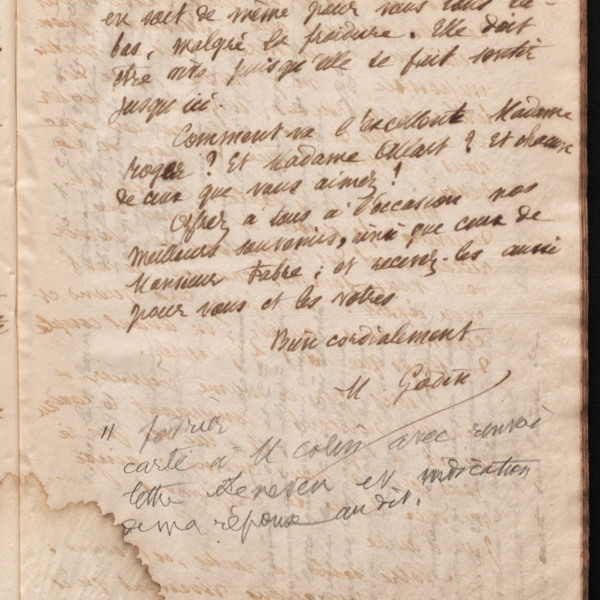 en soit de même pour vous tous là-
bas, malgré la froidure. Elle doit
être rude puisqu'elle se fait sentir
jusqu'ici.
Comment va l'excellente Madame
Roger ? Et Madame Allart ? Et chacun
de ceux que vous aimez !
Offrez à tous à l'occasion nos
meilleurs souvenirs, ainsi que ceux de
Monsieur Fabre ; et recevez-les aussi
pour vous et les vôtres
Bien cordialement
M Godin
11 février
carte à M Colin avec renvoi
lettre et indication
de ma réponse audit.